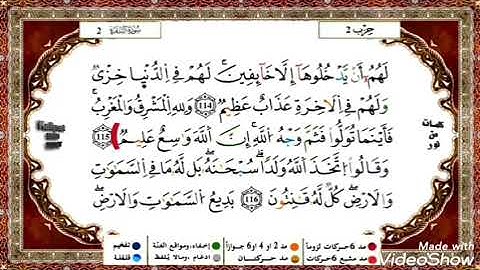 حزب 2
سورة البقرة 2
لَهُمُۥٓ أَنْ يَّدْخُلُوهَآ إِلَّا خَآئِفِينَۖ لَهُمْ فِى الدُّنْيَا خِزْىٌ
وَلَهُمْ فِى الَاخِرَةِ عَذَابٌ عَظِيمٌۖ 114 وَلِلهِ الْمَشْرِقُ وَالْمَغْرِبُۖ
فَأَيْنَمَا تُوَلُّواْ فَثَمَّ وَجْهُ اللَّهِۖ إِنَّ اللَّهَ وَاسِعٌ عَلِيمٌۖ 115
وَقَالُواْ اتَّخَذَ اللَّهُ وَلَداًۖ سُبْحَٰنَهُۥۖ بَل لَّهُۥ مَا فِى السَّمَٰوَٰتِ
وَالَارْضِۖ كُلٌّ لَّهُۥ قَٰنِتُونَۖ 116 بَدِيعُ السَّمَٰوَٰتِ وَالَارْضِۖ
كلمات
من
نور
مد 6 حركات لزوماً مد 2 أو 4 أو 6 جوازاً إخفاء، ومواقع الغنة تفخيم
مد مشبع 6 حركات مد حركتان ادغام، ومالا يلفظ قلقلة
Made with
VideoShow